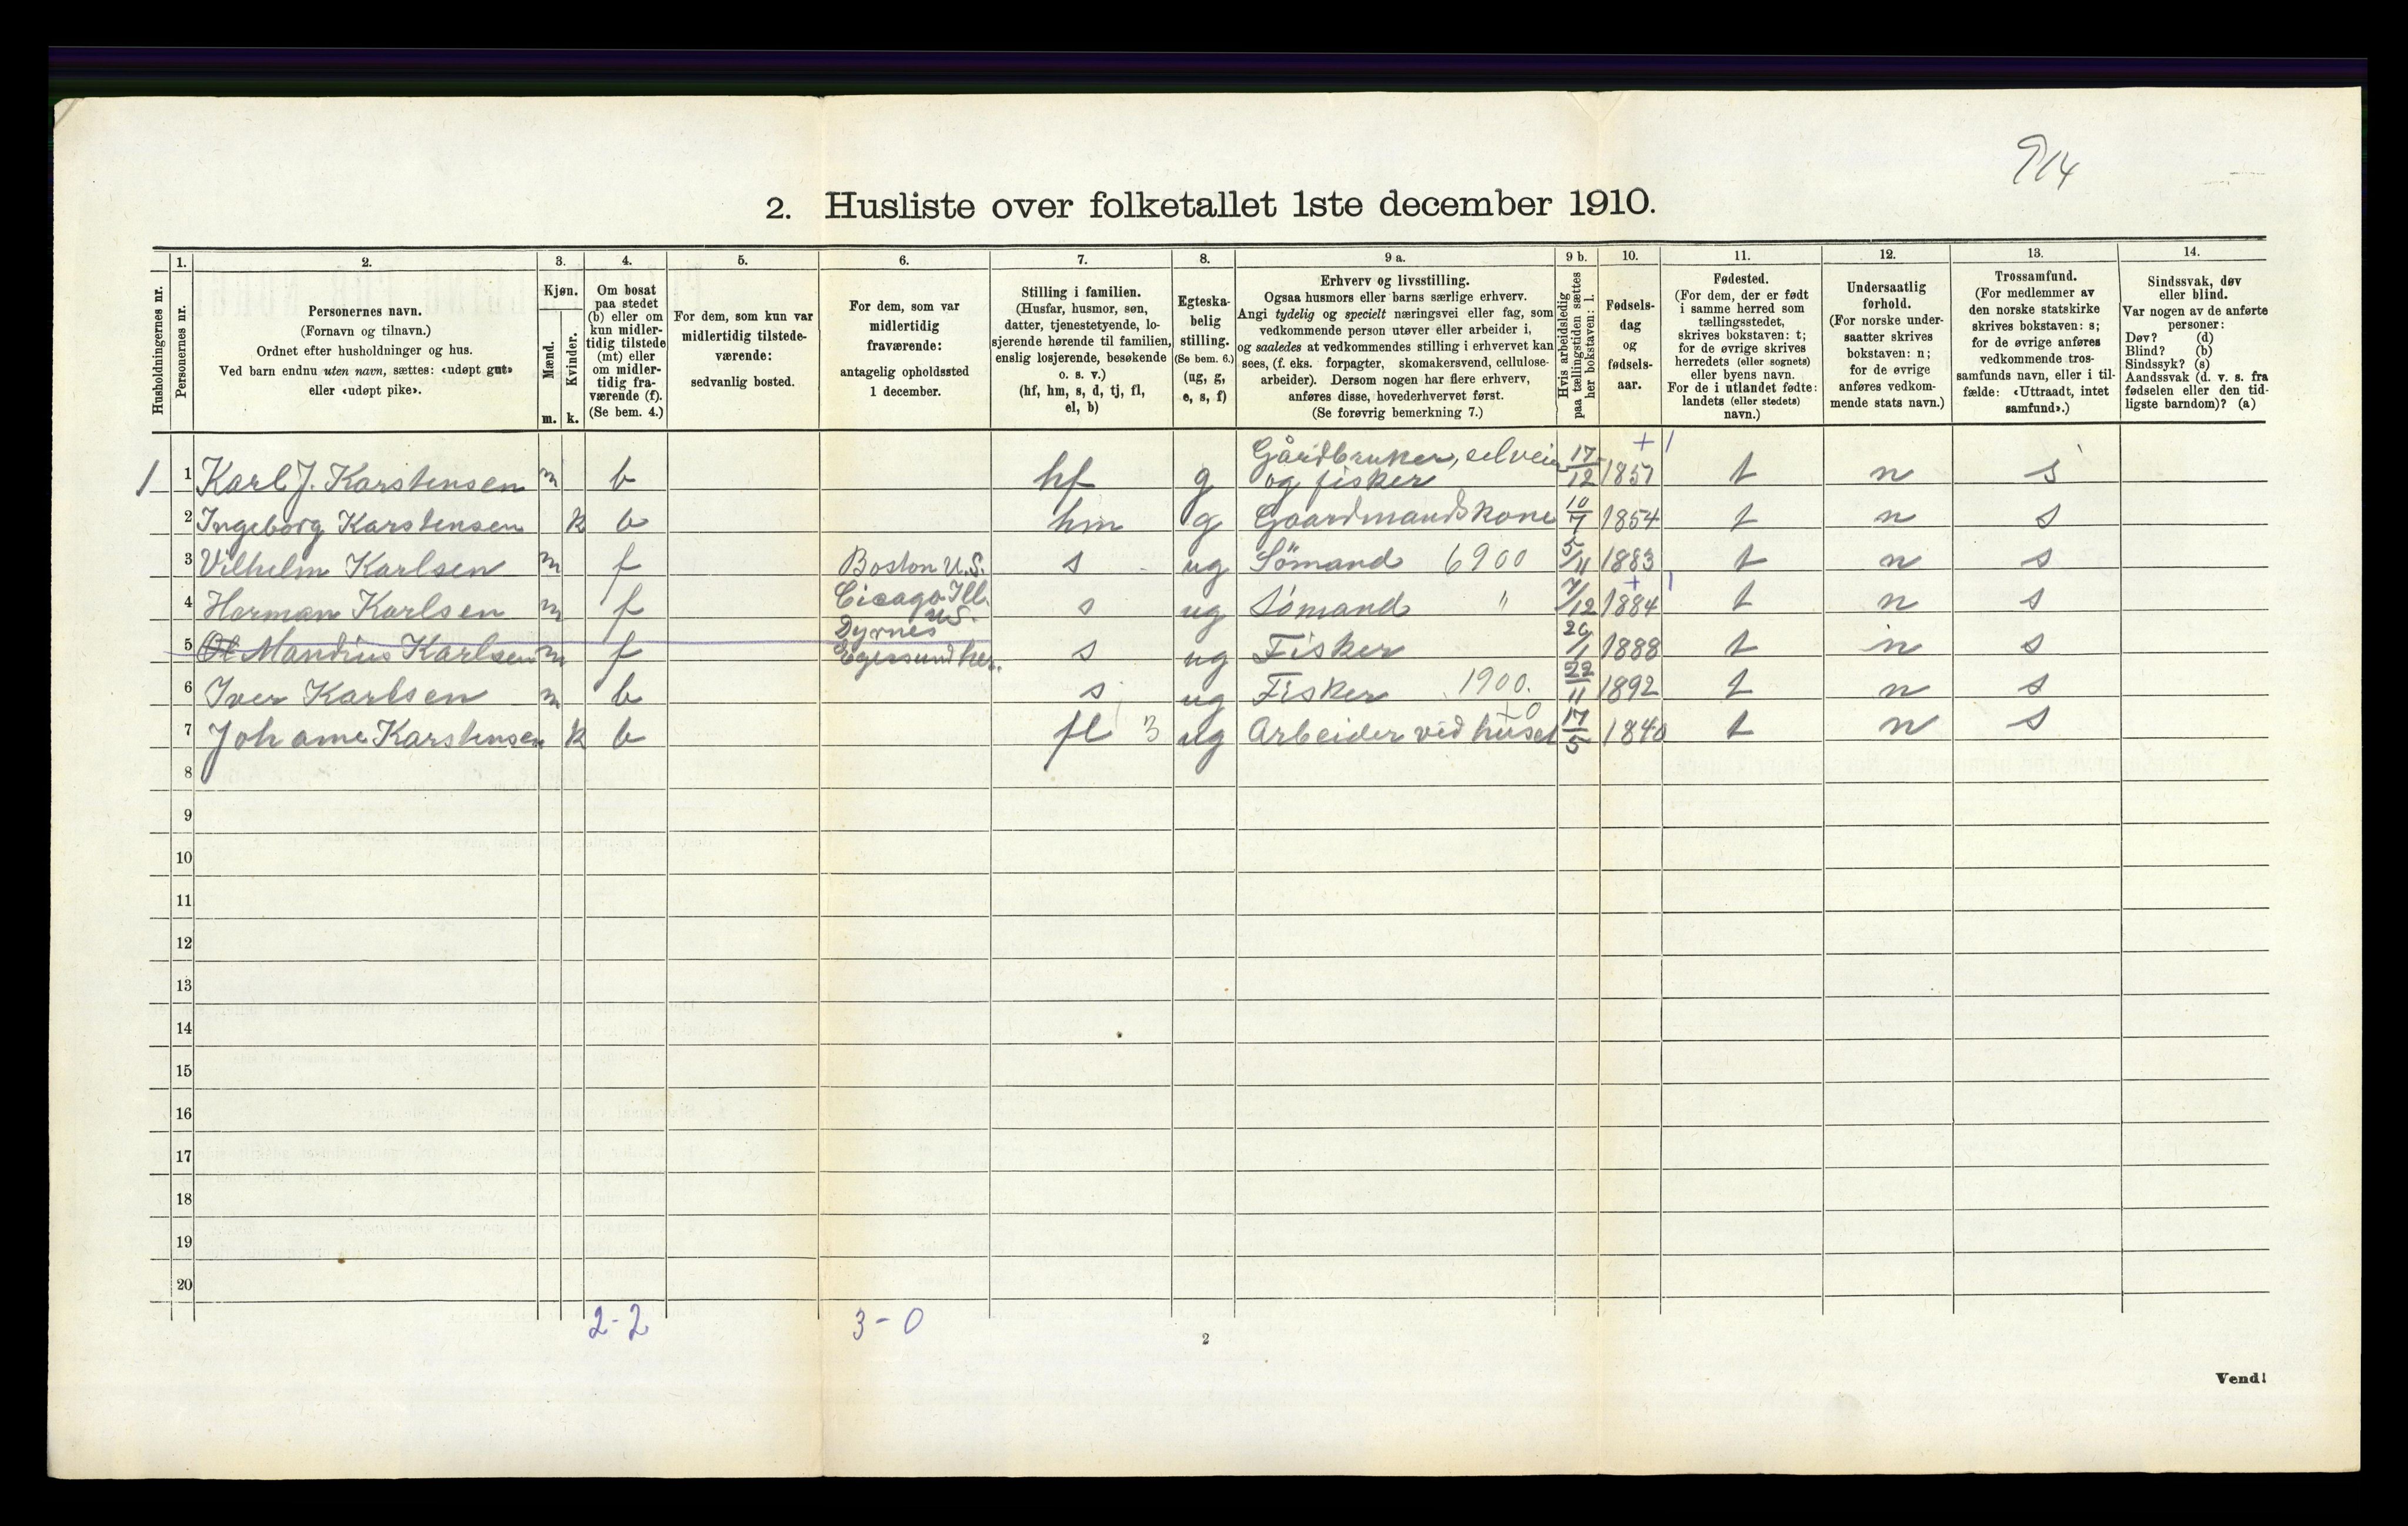 914
2. Husliste over folketallet 1ste december 1910.
Husholdningernes nr.
1.
Personernes nr.
2.
Personernes navn.
(Fornavn og tilnavn.)
Ordnet efter husholdninger og hus.
Ved barn endnu uten navn, sættes: «udøpt gut»
eller «udøpt pike».
3.
Kjøn.
Mænd.
Kvinder.
m. k.
4.
Om bosat
paa stedet
(b) eller om
kun midler-
tidig tilstede
(mt) eller
om midler-
tidig fra-
værende (f).
(Se bem. 4.)
5.
For dem, som kun var
midlertidig tilstede-
værende:
sedvanlig bosted.
6.
For dem, som var
midlertidig
fraværende:
antagelig opholdssted
1 december.
7.
Stilling i familien.
(Husfar, husmor, søn,
datter, tjenestetyende, lo-
sjerende hørende til familien,
enslig losjerende, besøkende
o. s. v.)
(hf, hm, s, d, tj, fl,
el, b)
8.
Egteska-
belig
stilling.
(Se bem. 6.)
(ug, g,
e, s, f)
9 a.
Erhverv og livsstilling.
Ogsaa husmors eller barns særlige erhverv.
Angi tydelig og specielt næringsvei eller fag, som
vedkommende person utøver eller arbeider i,
og saaledes at vedkommendes stilling i erhvervet kan
sees, (f. eks. forpagter, skomakersvend, cellulose-
arbeider). Dersom nogen har flere erhverv,
anføres disse, hovederhvervet først.
(Se forøvrig bemerkning 7.)
9 b.
Hvis arbeidsledig
paa tællingstiden sættes
her bokstaven: l.
10.
Fødsels-
dag
og
fødsels-
aar.
11.
Fødested.
(For dem, der er født
i samme herred som
tællingsstedet,
skrives bokstaven: t;
for de øvrige skrives
herredets (eller sognets)
eller byens navn.
For de i utlandet fødte:
landets (eller stedets)
navn.)
12.
Undersaatlig
forhold.
(For norske under-
saatter skrives
bokstaven: n;
for de øvrige
anføres vedkom-
mende stats navn.)
13.
Trossamfund.
(For medlemmer av
den norske statskirke
skrives bokstaven: s;
for de øvrige anføres
vedkommende tros-
samfunds navn, eller i til-
fælde: «Uttraadt, intet
samfund».)
14.
Sindssvak, døv
eller blind.
Var nogen av de anførte
personer:
Døv? (d)
Blind? (b)
Sindssyk? (s)
Aandssvak (d. v. s. fra
fødselen eller den tid-
ligste barndom)? (a)
1 1 Karl J. Karstensen m b hf g Gårdbruker, selveier og fisker 17/12 1857 + 1 t n s
2 Ingeborg Karstensen k b hm g Gaardmandskone 10/7 1854 t n s
3 Vilhelm Karlsen m f Boston U.S. s ug Sømand 6900 5/11 1883 t n s
4 Herman Karlsen m f Cicago Ill. U.S. s ug Sømand " 7/12 1884 + 1 t n s
5 Mandius Karlsen m f Dyrnes Egersund her. s ug Fisker 20/1 1888 t n s
6 Iver Karlsen m b s ug Fisker 1900. 22/11 1892 t n s
7 Johanne Karstensen k b fl 3 ug Arbeider ved huset +0 17/5 1840 t n s
8
9
10
11
12
13
14
15
16
17
18
19
20
2-2 3-0
2
Vend!